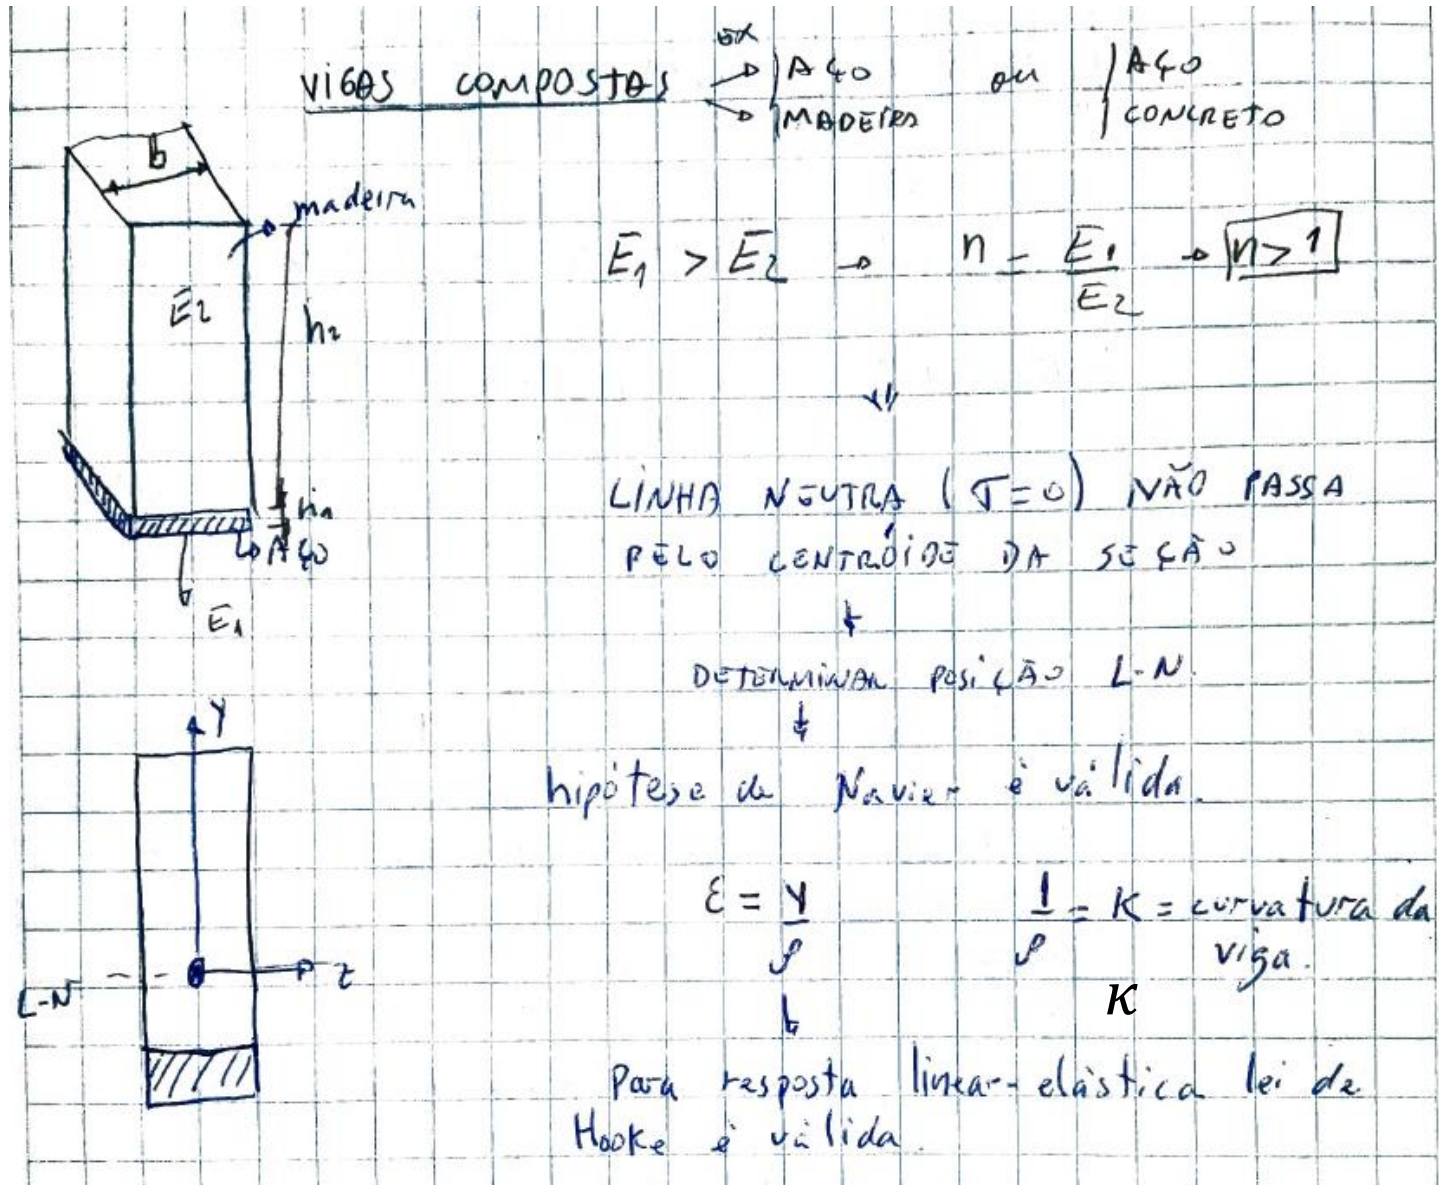 VIGAS COMPOSTAS
EX
AÇO
MADEIRA
ou
AÇO
CONCRETO
b
madeira
E2
h2
h1
AÇO
E1
E1 > E2 → n = E1/E2 → n > 1
LINHA NEUTRA (σ=0) NÃO PASSA
PELO CENTRÓIDE DA SEÇÃO
DETERMINAR POSIÇÃO L-N.
hipótese de Navier é válida.
Y
z
L-N
ε = y/ρ
1/ρ = K = curvatura da
viga.
κ
Para resposta linear-elástica lei de
Hooke é válida.